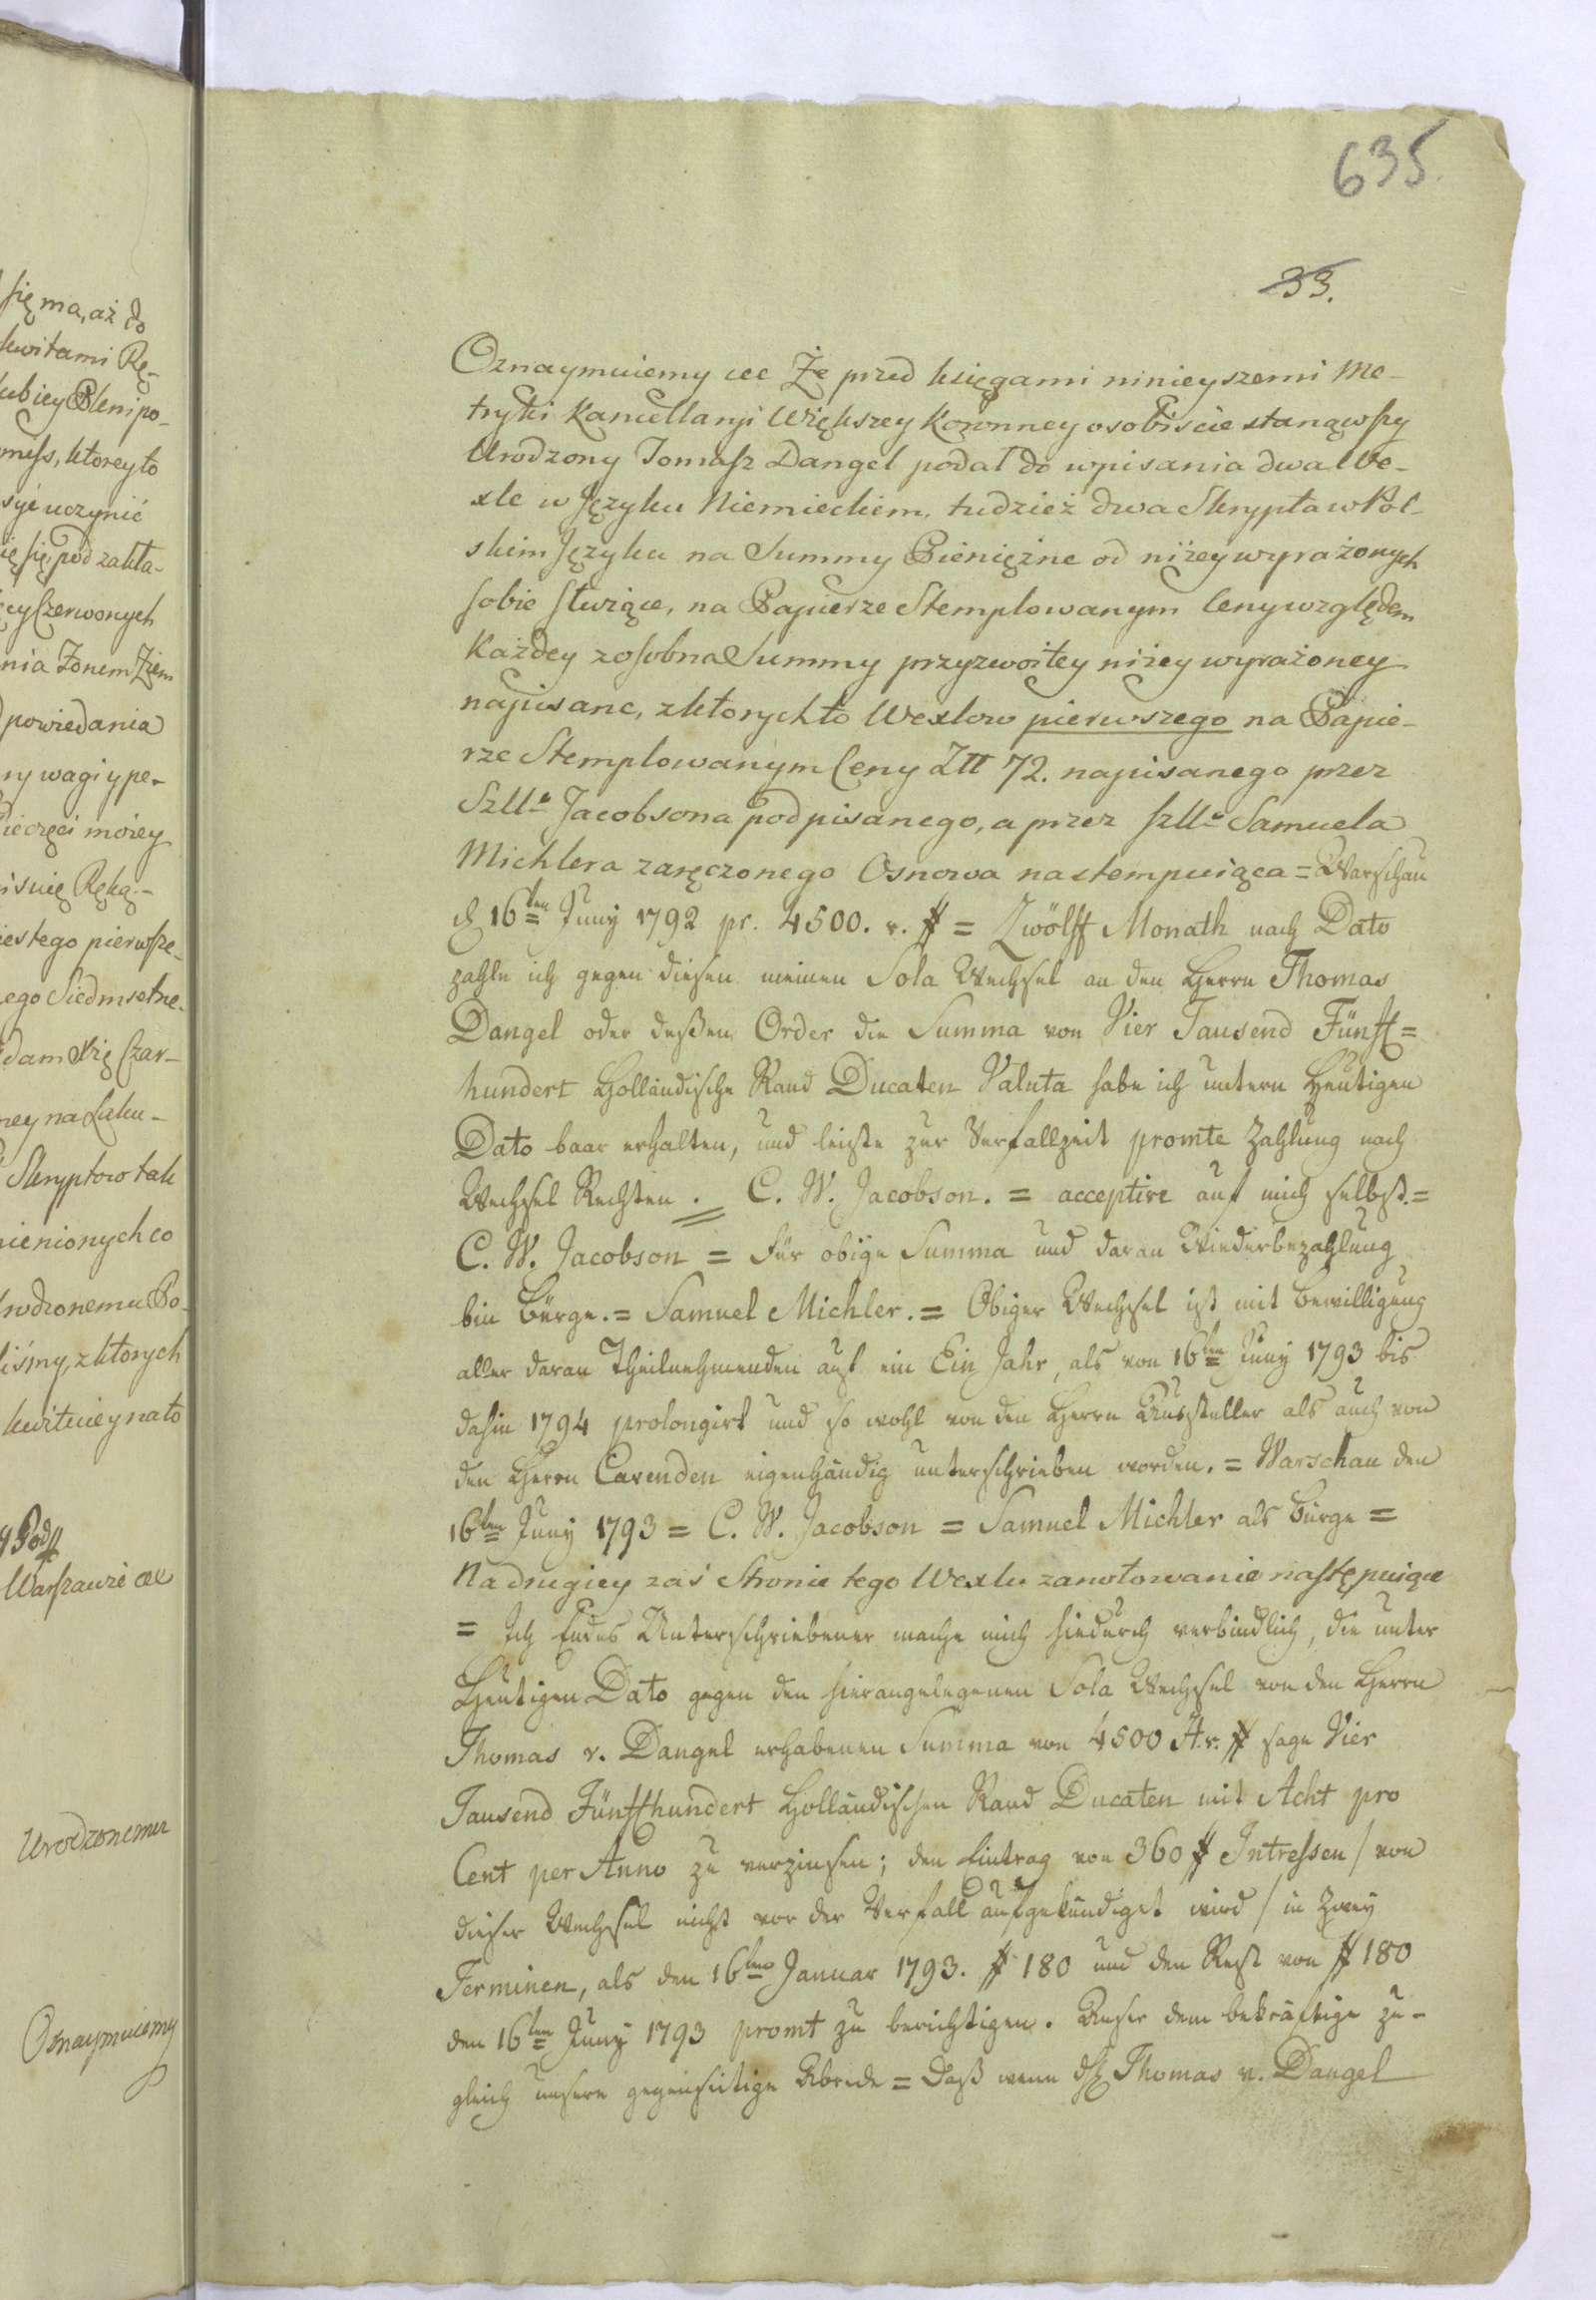 się ma, aż do
kwitami Rę-
ubiey Plenipo-
męss, ktorey to
syć uczynić
ię się, pod zakła-
ęcy Czerwonych
nia Zonem Ziem
powiedania
ny wagi y pe-
ieczęci moiey
isuię Ręką.-
iestego pierwsze-
ego Siedmsetne-
dam Xię Czar-
ney na Laku-
Skryptow tak
nienionych co
rodzonemu Bo-
iśmy, z ktorych
kwituie y na to
Warszawie etc
Urodzonemu
Oznaymuiemy
635.
33.
Oznaymuiemy etc Że przed księgami ninieyszemi Me-
tryki Kancellaryi Większey Koronney osobiście stanąwszy
Urodzony Tomasz Dangel podał do wpisania dwa We-
xle w Języku Niemieckiem, tudzież dwa Skrypta w Pol-
skim Języku na Summy Pieniężne od niżey wyrażonych
sobie służące, na Papierze Stemplowanym Ceny względem
Każdey z osobna Summy przyzwoitey niżey wyrażoney
napisane, z ktorych to Wexlow pierwszego na Papie-
rze Stemplowanym Ceny Złł 72. napisanego przez
Szlle Jacobsona podpisanego, a przez szlle Samuela
Michlera zaręczonego Osnowa nastempuiąca = Warschau
d 16ten Juny 1792 pr. 4500. r. # = Zwölff Monath nach Dato
zahle ich gegen diesen meinen Sola Wechsel an den Herrn Thomas
Dangel oder deßen Order die Summa von Vier Tausend Fünff=
hundert Holländische Rand Ducaten Valuta habe ich untern Heutigen
Dato baar erhalten, und leiste zur Verfallzeit promte Zahlung nach
Wechsel Rechten. = C. W. Jacobson. = acceptire auf mich selbst. =
C. W. Jacobson = Für obige Summa und daran Wiederbezahlung
bin Bürge. = Samuel Michler. = Obiger Wechsel ist mit Bewilligung
aller daran Theilnehmenden auf ein Ein Jahr, als von 16ten Juny 1793 bis
dahin 1794 prolongirt und so wohl von den Herrn Aussteller als auch von
den Herrn Cavenden eigenhändig unterschrieben worden. = Warschau den
16ten Juny 1793 = C. W. Jacobson = Samuel Michler als Bürge =
Na drugiey zaś Stronie tego Wexlu zanotowanie następuiące
= Ich Endes Unterschriebener mache mich hiedurch verbindlich, die unter
Heutigen Dato gegen den hierangelegenen Sola Wechsel von den Herrn
Thomas v. Dangel erhabenen Summa von 4500 H. r. # sage Vier
Tausend Fünffhundert Holländischen Rand Ducaten mit Acht pro
Cent per Anno zu verzinsen; den Eintrag von 360 # Intressen / von
dieser Wechsel nicht vor der Verfall aufgekündiget wird / in Zwey
Terminen, als den 16ten Januar 1793. # 180 und den Rest von # 180
den 16ten Juny 1793 promt zu berichtigen. Auser dem bekräftige zu-
gleich unsere gegenseitige Abrede = Daß wenn Thomas v. Dangel